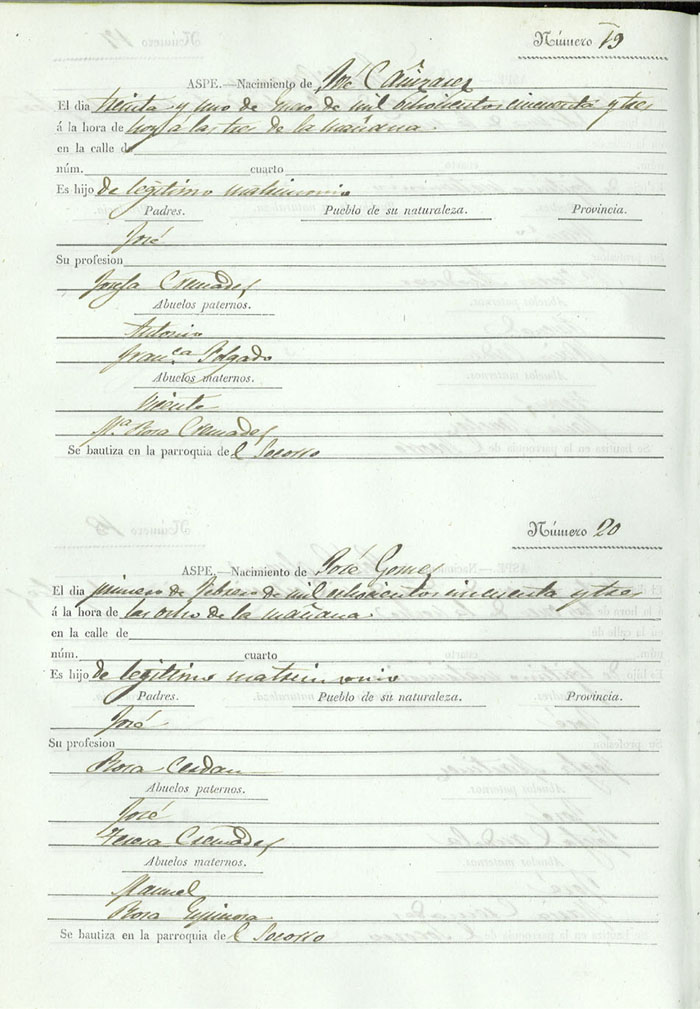 Número 19
ASPE.—Nacimiento de José Cañizares
El dia treinta y uno de Enero de mil ochocientos cincuenta y tres
á la hora de hoy á las tres de la mañana.
en la calle de
núm. cuarto
Es hijo de legitimo matrimonio
Padres. Pueblo de su naturaleza. Provincia.
José
Su profesion
Josefa Cremades
Abuelos paternos.
Antonio
Fran.ca Folgado
Abuelos maternos.
Vicente
M.a Rosa Cremades
Se bautiza en la parroquia de l Socorro
Número 20
ASPE.—Nacimiento de José Gomes
El dia primero de Febrero de mil ochocientos cincuenta y tres
á la hora de las ocho de la mañana
en la calle de
núm. cuarto
Es hijo de legitimo matrimonio
Padres. Pueblo de su naturaleza. Provincia.
José
Su profesion
Rosa Cerdan
Abuelos paternos.
José
Teresa Cremades
Abuelos maternos.
Manuel
Rosa Espinosa
Se bautiza en la parroquia de l Socorro